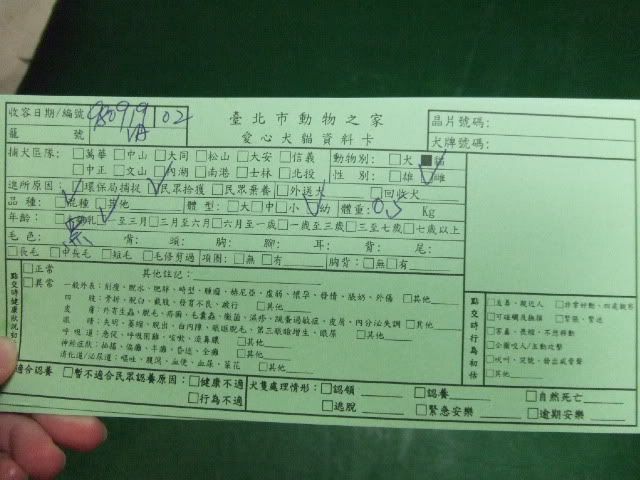 收容日期/編號 980919 02
臺北市動物之家
晶片號碼:
籠 號
愛心犬貓資料卡
犬牌號碼:
捕犬區隊: □萬華 □中山 □大同 □松山 □大安 □信義 動物別: □犬 ■貓
□中正 □文山 □內湖 □南港 □士林 □北投 性 別: □雄 □雌
進所原因: □環保局捕捉 □民眾拾獲 □民眾棄養 □外送犬 □回收犬
品 種: □混種 □其他 體 型: □大 □中 □小 □幼 體重: 0.5 Kg
年齡: 乳 □一至三月 □三月至六月 □六月至一歲 □一歲至三歲 □三至七歲 □七歲以上
毛 色: 黑 嘴: 頭: 胸: 腳: 耳: 背: 尾:
□長毛 □中長毛 □短毛 □毛修剪過 項圈: □無 □有 胸背: □無 □有
點交時健康狀況初
□正常
□異常
其他註記:
一般外表: 削瘦、脫水、肥胖、畸型、腫瘤、赫尼亞、虛弱、懷孕、發情、脹奶、外傷 □其他
四 肢: 骨折、脫臼、截肢、發育不良、跛行 □其他
皮 膚: 外寄生蟲、脫毛、疥癬、毛囊蟲、黴菌、濕疹、跳蚤過敏症、皮屑、內分泌失調 □其他
眼 睛: 失明、萎縮、脫出、白內障、眼瞼脫毛、第三眼瞼增生、眼屎 □其他
呼吸道: 急促、呼吸困難、咳嗽、流鼻膿 □其他
神經症狀: 抽搐、偏癱、半癱、昏迷、全癱 □其他
消化道/泌尿道: 嘔吐、腹瀉、血便、血尿、菜花 □其他
點交時行為初估
□友善、親近人 □非常好動、四處觀察
□可碰觸及撫摸 □緊張、緊迫
□害羞、畏縮、不想移動
□企圖咬人/主動攻擊
□吠叫、哭號、發出威脅聲
□其他
適合認養 □暫不適合民眾認養原因: □健康不適
□行為不適
犬隻處理情形: □認領 □認養 □自然死亡
□逃脫 □緊急安樂 □逾期安樂